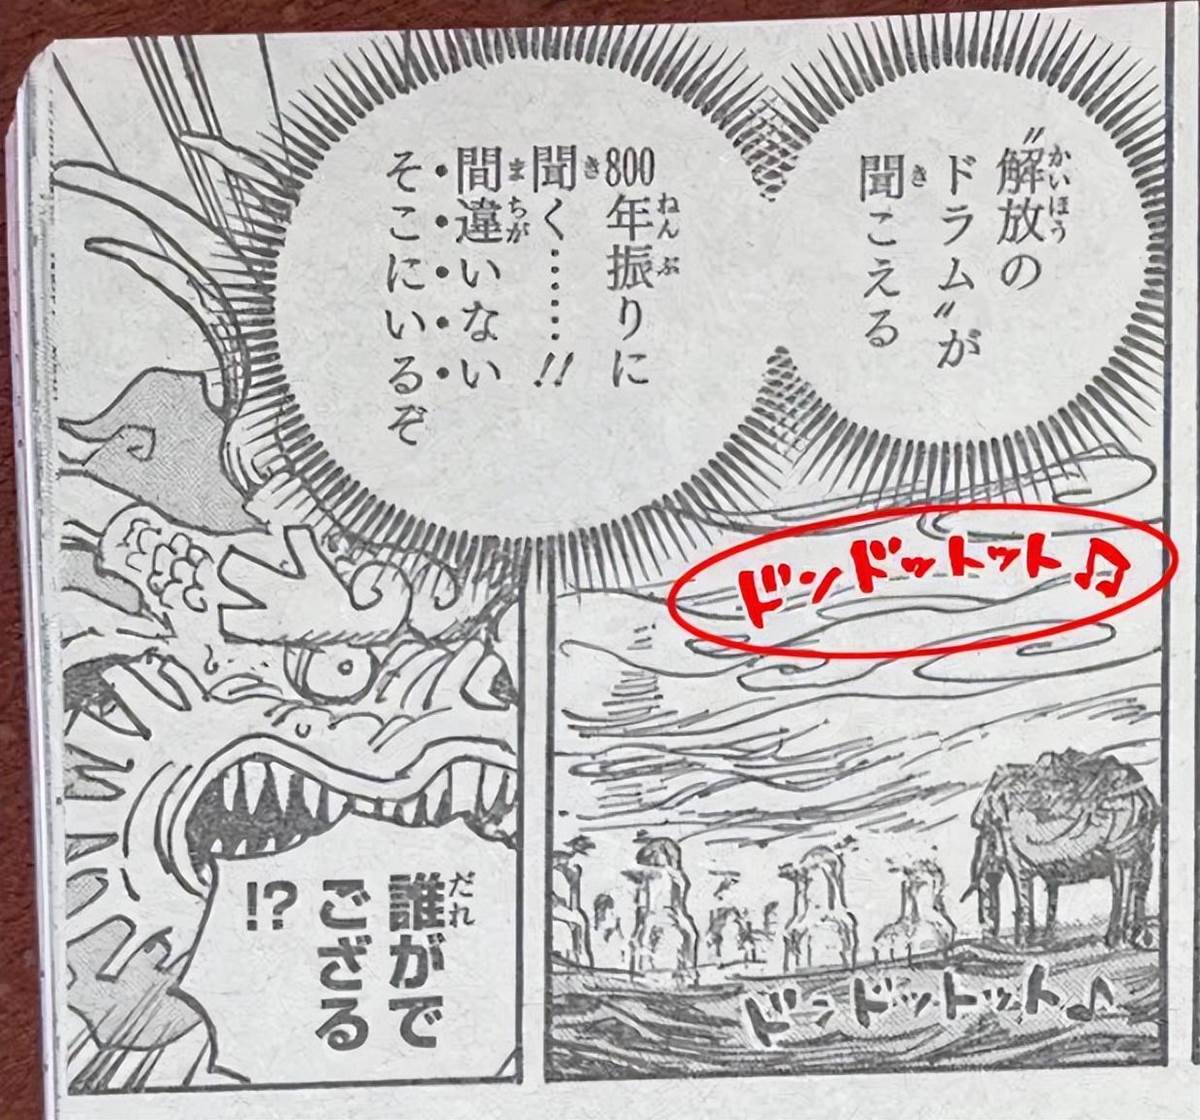 “解放の
ドラム”が
聞こえる
800年振りに
聞く……!!
間違いない
そこにいるぞ
ドンドットット♫
ドンドットット♪
誰がで
ござる
!?